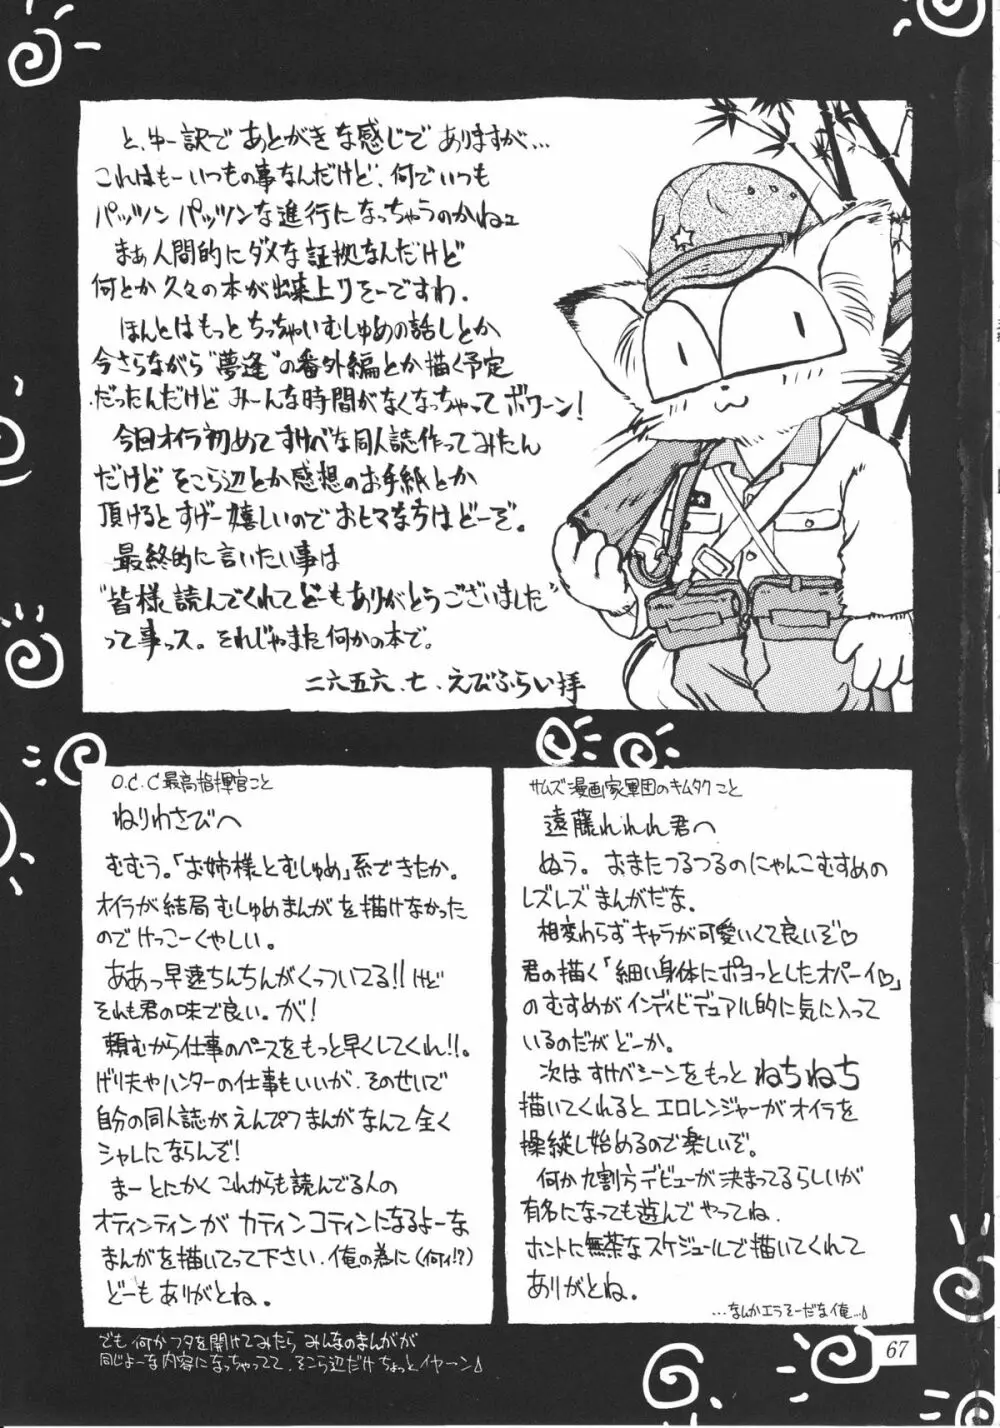 と、ゆー訳で あとがきな感じで ありますが…
これはもーいつもの事なんだけど、何でいつも
パッツン パッツンな進行になっちゃうのかねェ
まぁ人間的にダメな証拠なんだけど
何とか久々の本が出来上りそーですわ.
ほんとはもっとちっちゃいむしゅめの話しとか
今さらながら"夢逢"の番外編とか描く予定
だったんだけど み〜んな時間がなくなっちゃってボワーン!
今回オイラ初めてすけべな同人誌作ってみたん
だけど そこら辺とか感想のお手紙とか
頂けるとすげー嬉しいので おヒマなちはどーぞ。
最終的に言いたい事は
"皆様読んでくれてどーもありがとうございました"
って事っス。それじゃまた何かの本で。
二六五六.七.えびふらい拝
O.C.C最高指揮官こと
ねりわさびへ
むむう。「お姉様とむしゅめ」系できたか。
オイラが結局むしゅめまんがを描けなかった
のでけっこーくやしい。
ああっ早速ちんちんがくっついてる!!けど
それも君の味で良い。が!
頼むから仕事のペースをもっと早くしてくれ!!。
げり夫やハンターの仕事もいいが、そのせいで
自分の同人誌がえんぴつまんがなんて全く
シャレにならんぞ!
まーとにかくこれからも読んでる人の
オティンティンがカティンコティンになるよーな
まんがを描いてって下さい.俺の為に(何ィ!?)
どーもありがとね。
サムズ漫画家軍団のキムタクこと
遠藤れれれ君へ
ぬう。おまたつるつるのにゃんこむすめの
レズレズまんがだな。
相変わらずキャラが可愛いくて良いぞ♡
君の描く「細い身体にポヨっとしたオパーイ♡」
のむすめがインディビデュアル的に気に入って
いるのだがどーか。
次はすけべシーンをもっとねちねち
描いてくれると エロレンジャーがオイラを
操縦し始めるので楽しいぞ。
何か九割方デビューが決まってるらしいが
有名になっても遊んでやってね.
ホントに無茶なスケジュールで描いてくれて
ありがとね。
…なんかエラそーだな俺…♪
でも何かフタを開けてみたら みんなのまんがが
同じよーな内容になっちゃってて、そこら辺だけちょっとイヤーン♪
67